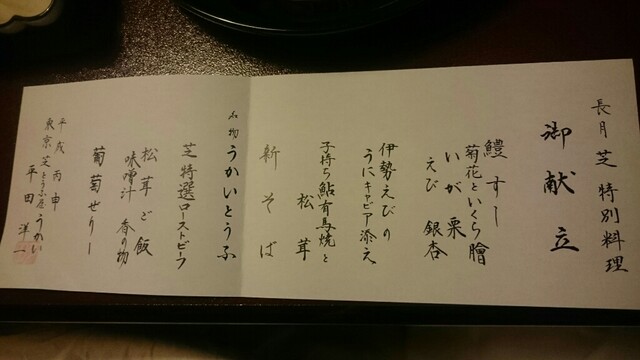 長月 芝 特別料理
御献立
鱧すし
菊花といくら膾
いが栗
えび 銀杏
伊勢えびの
うにキャビア添え
子持ち鮎有馬焼と
松茸
新そば
名物 うかいとうふ
芝特選ローストビーフ
松茸ご飯
味噌汁 香の物
葡萄ぜりー
平成丙申
東京芝とうふ屋うかい
平田洋一